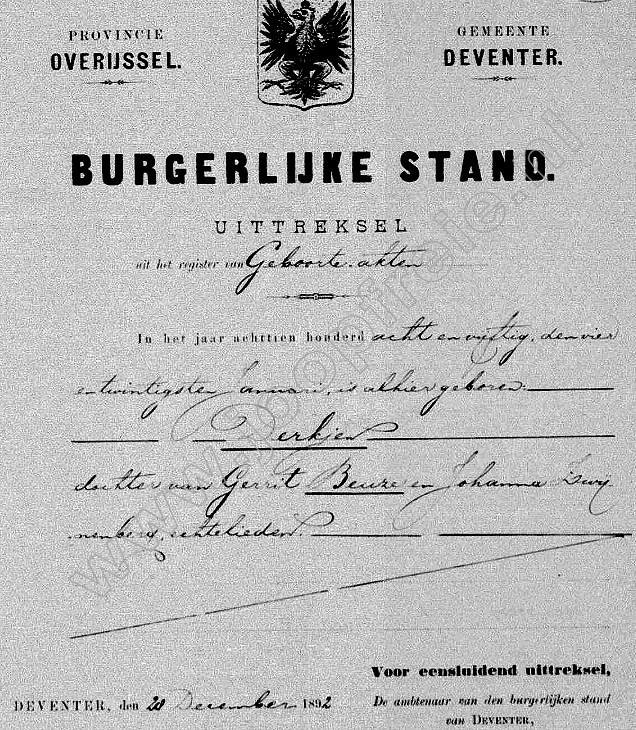 PROVINCIE
OVERIJSSEL.
GEMEENTE
DEVENTER.
BURGERLIJKE STAND.
UITTREKSEL
uit het register van Geboorte-akten
In het jaar achttien honderd acht en vijftig, den vier
en twintigsten Januari, is alhier geboren:
Derkjen
dochter van Gerrit Beuze en Johanna Zwij
nenberg, echtelieden.
Voor eensluidend uittreksel,
DEVENTER, den 20 December 1892
De ambtenaar van den burgerlijken stand
van DEVENTER,